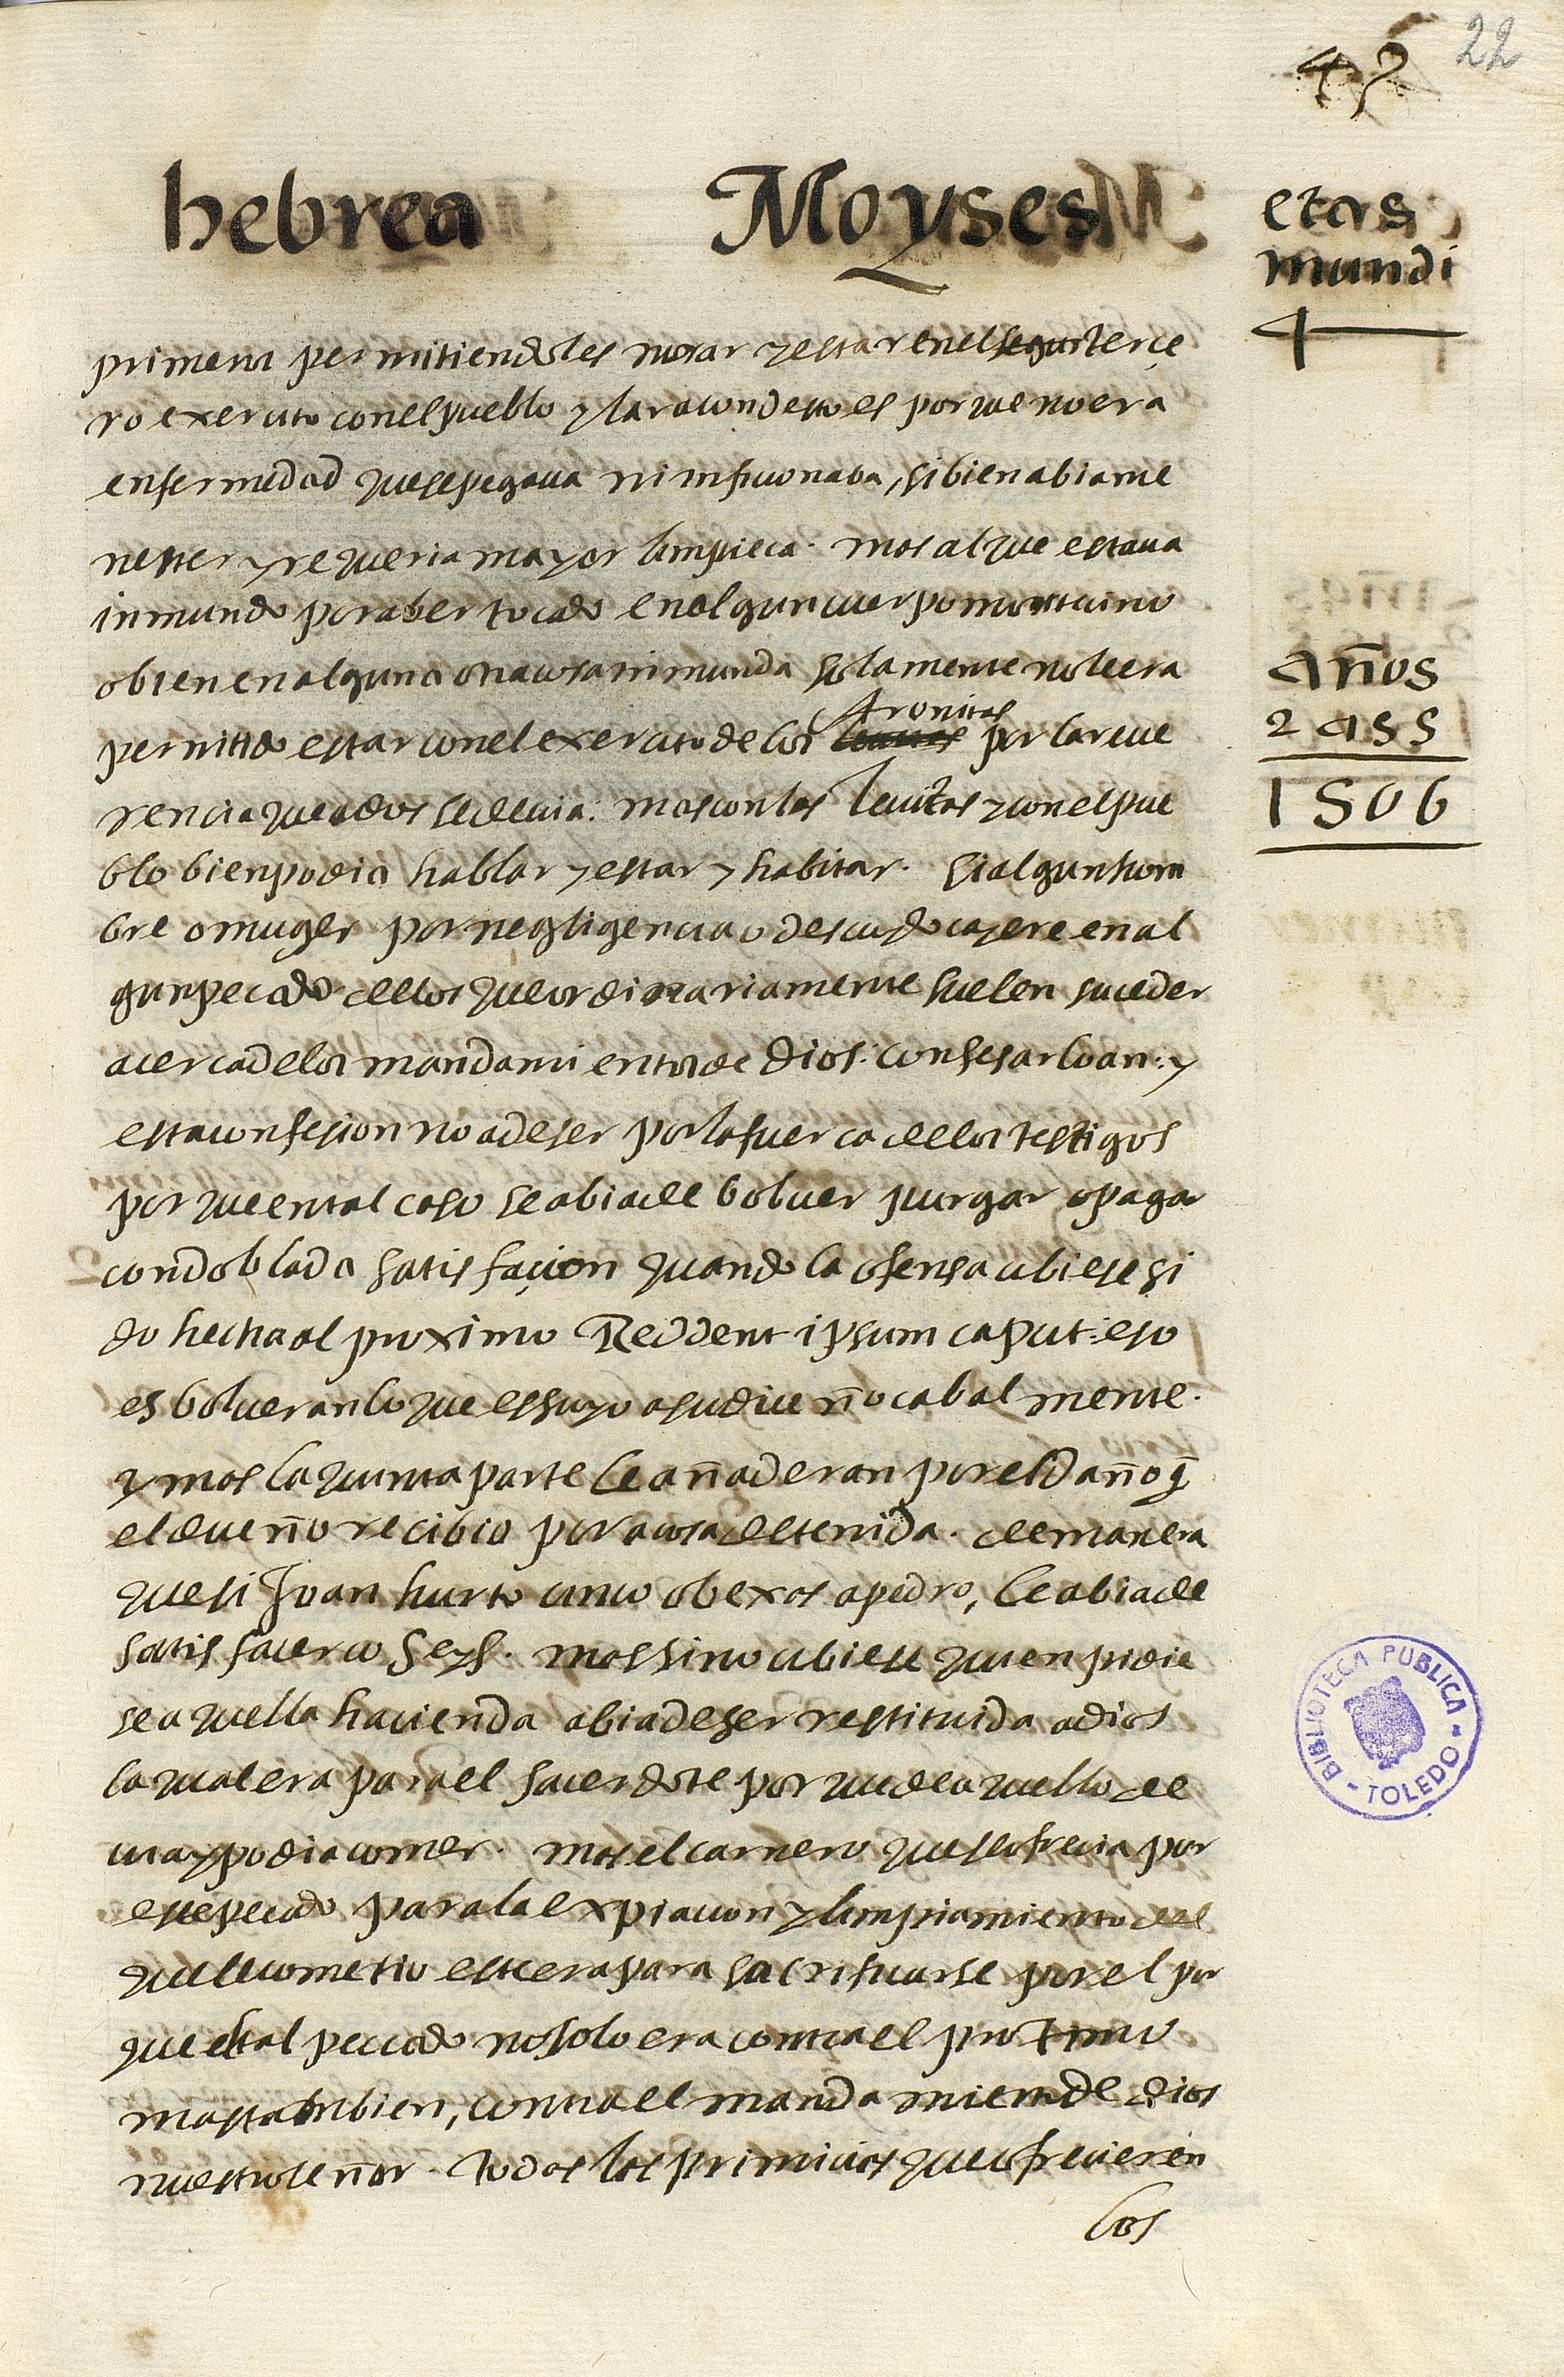 45 22
hebrea Moyses
etas
mundi
4
primera permitiendoles morar y estar en el terce
ro exercito con el pueblo y la raçon desto es porque no era
enfermedad que se pegaua ni inficionaba, si bien abia me
nester y requeria mayor limpieca. mas al que estaua
inmundo por aber tocado en algun cuerpo mortecino
o bien en alguna otra cosa inmunda solamente no le era
permitido estar con el exercito de los Aronitas por la reue
rencia que a dios se deuia: mas con los leuitas y con el pue
blo bien podia hablar y estar y habitar. Si algun hom
bre o muger por negligencia o descuydo cayere en al
gun pecado de los que ordinariamente suelen suceder
acerca de los mandamientos de Dios: confesarlo an: y
esta confesion no a de ser por la fuerca de los testigos
porque en tal caso se abia de boluer purgar o pagar
con doblada satisfaçion quando la ofensa ubiese si
do hecha al proximo Reddent ipsum caput: eso
es bolueran lo que es suyo a su dueño cabalmente.
y mas la quinta parte le añaderan por el daño q̄
el dueño recibio por la cosa detenida. de manera
que si Joan hurto cinco obexas a pedro, le abia de
satisfacer co seys. mas si no ubiese quien pidie
se aquella hacienda abia de ser restituida a dios
la qual era para el sacerdote porque de aquello de
cia y podia comer. mas el carnero que se ofrecia por
este pecado para la expiacion y limpiamiento del
que le cometio este era para sacrificarse por el por
que el tal peccado no solo era contra el proximo
mas tambien, contra el mandamiento de Dios
nuestro señor. todas las primicias que ofrecieren
los
años
2455
1506
BIBLIOTECA PUBLICA
- TOLEDO -